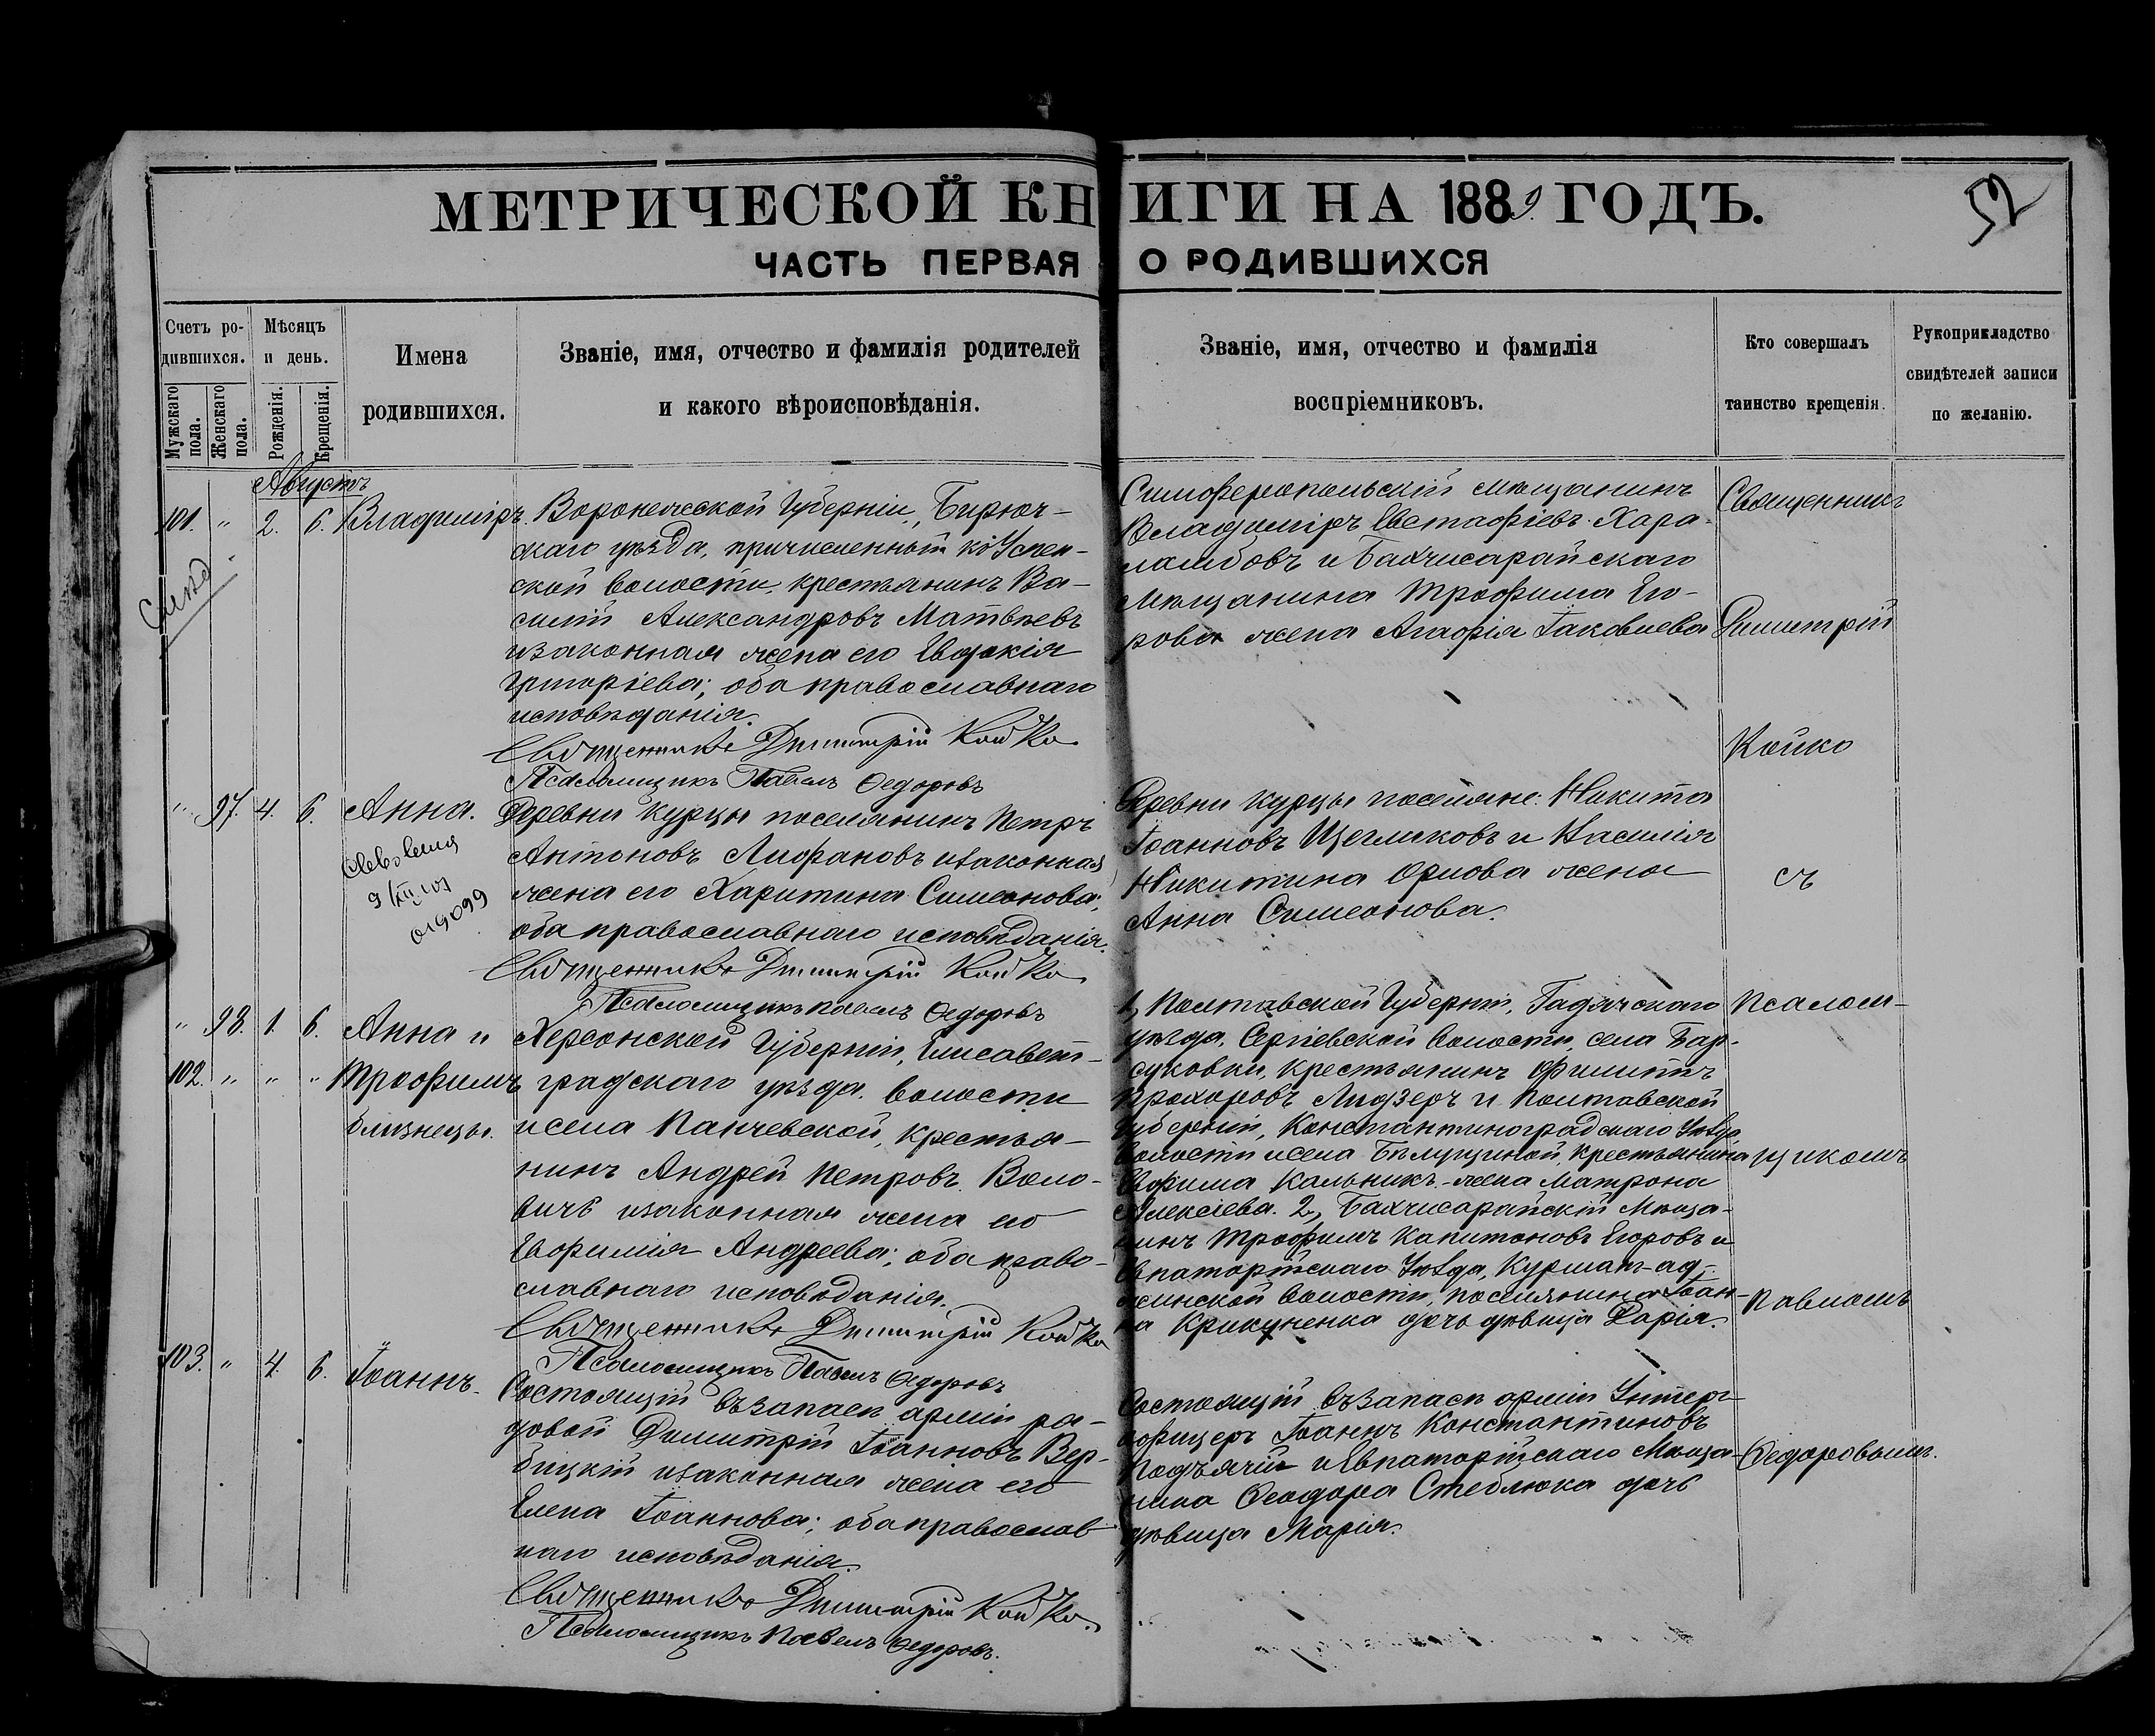 МЕТРИЧЕСКОЙ КНИГИ НА 1889 ГОДЪ.
52
ЧАСТЬ ПЕРВАЯ О РОДИВШИХСЯ
Счетъ ро-
дившихся.
Мужскаго пола.
Женскаго пола.
Мѣсяцъ
и день.
Рожденія.
Крещенія.
Имена
родившихся.
Званіе, имя, отчество и фамилія родителей
и какого вѣроисповѣданія.
Званіе, имя, отчество и фамилія
воспріемниковъ.
Кто совершалъ
таинство крещенія.
Рукоприкладство
свидѣтелей записи
по желанію.
Августъ
101. " 2. 6. Владиміръ.
Воронежской Губерніи, Бирюч-
скаго уѣзда, причисленный къ Успен-
ской волости, крестьянинъ Ва-
силій Александровъ Матвѣевъ
и законная жена его Евдокія
Григоріева; оба православнаго
исповѣданія.
Священникъ Димитрій Койко
Псаломщикъ Павелъ Ѳедоровъ
Симферопольскій мѣщанинъ
Владиміръ Евстафіевъ Хара-
ламбовъ и Бахчисарайскаго
Мѣщанина Трофима Его-
рова жена Агафія Іаковлева
" 97. 4. 6. Анна.
9/XII 101
Деревни Курцы поселянинъ Петръ
Антоновъ Лиофановъ и законная
жена его Харитина Симеонова;
оба православнаго исповѣданія.
Священникъ Димитрій Койко
Псаломщикъ Павелъ Ѳедоровъ
Деревни Курцы поселяне: Никита
Іоанновъ Щегликовъ и Василія
Никитина Орлова жена
Анна Симеонова.
" 98. 1. 6. Анна и
102. " " " Трофимъ
близнецы.
Херсонской Губерніи, Елисавет-
градскаго уѣзда, волости
и села Панчевской, крестья-
нинъ Андрей Петровъ Воло-
вичъ и законная жена его
Евфимія Андреева; оба право-
славнаго исповѣданія.
Священникъ Димитрій Койко
Псаломщикъ Павелъ Ѳедоровъ
1, Полтавской Губерніи, Гадячскаго
уѣзда, Сергіевской волости, села Бар-
суковки, крестьянинъ Филиппъ
Прохоровъ Лидзеръ и Полтавской
Губерніи, Константиноградскаго Уѣзда
волости и села Бѣлущиной, крестьянина
Евфима Кальникъ - жена Матрона
Алексіева. 2, Бахчисарайскій Мѣща-
нинъ Трофимъ Капитоновъ Егоровъ и
Евпаторійскаго Уѣзда, Курман-ад-
жинской волости, поселянина Іоан-
на Крикуненка дочь дѣвица Дарія.
103. " 4. 6. Іоаннъ.
Состоящій въ запасѣ арміи ря-
довой Димитрій Іоанновъ Вер-
бицкій и законная жена его
Елена Іоаннова; оба православ-
наго исповѣданія.
Священникъ Димитрій Койко.
Псаломщикъ Павелъ Ѳедоровъ.
Состоящій въ запасѣ арміи Унтеръ-
офицеръ Іоаннъ Константиновъ
Подъячій и Евпаторійскаго Мѣща-
нина Ѳеодора Стеблюка дочь
дѣвица Марія.
Священникъ
Димитрій
Койко
съ
Псалом-
щикомъ
Павломъ
Ѳедоровымъ.